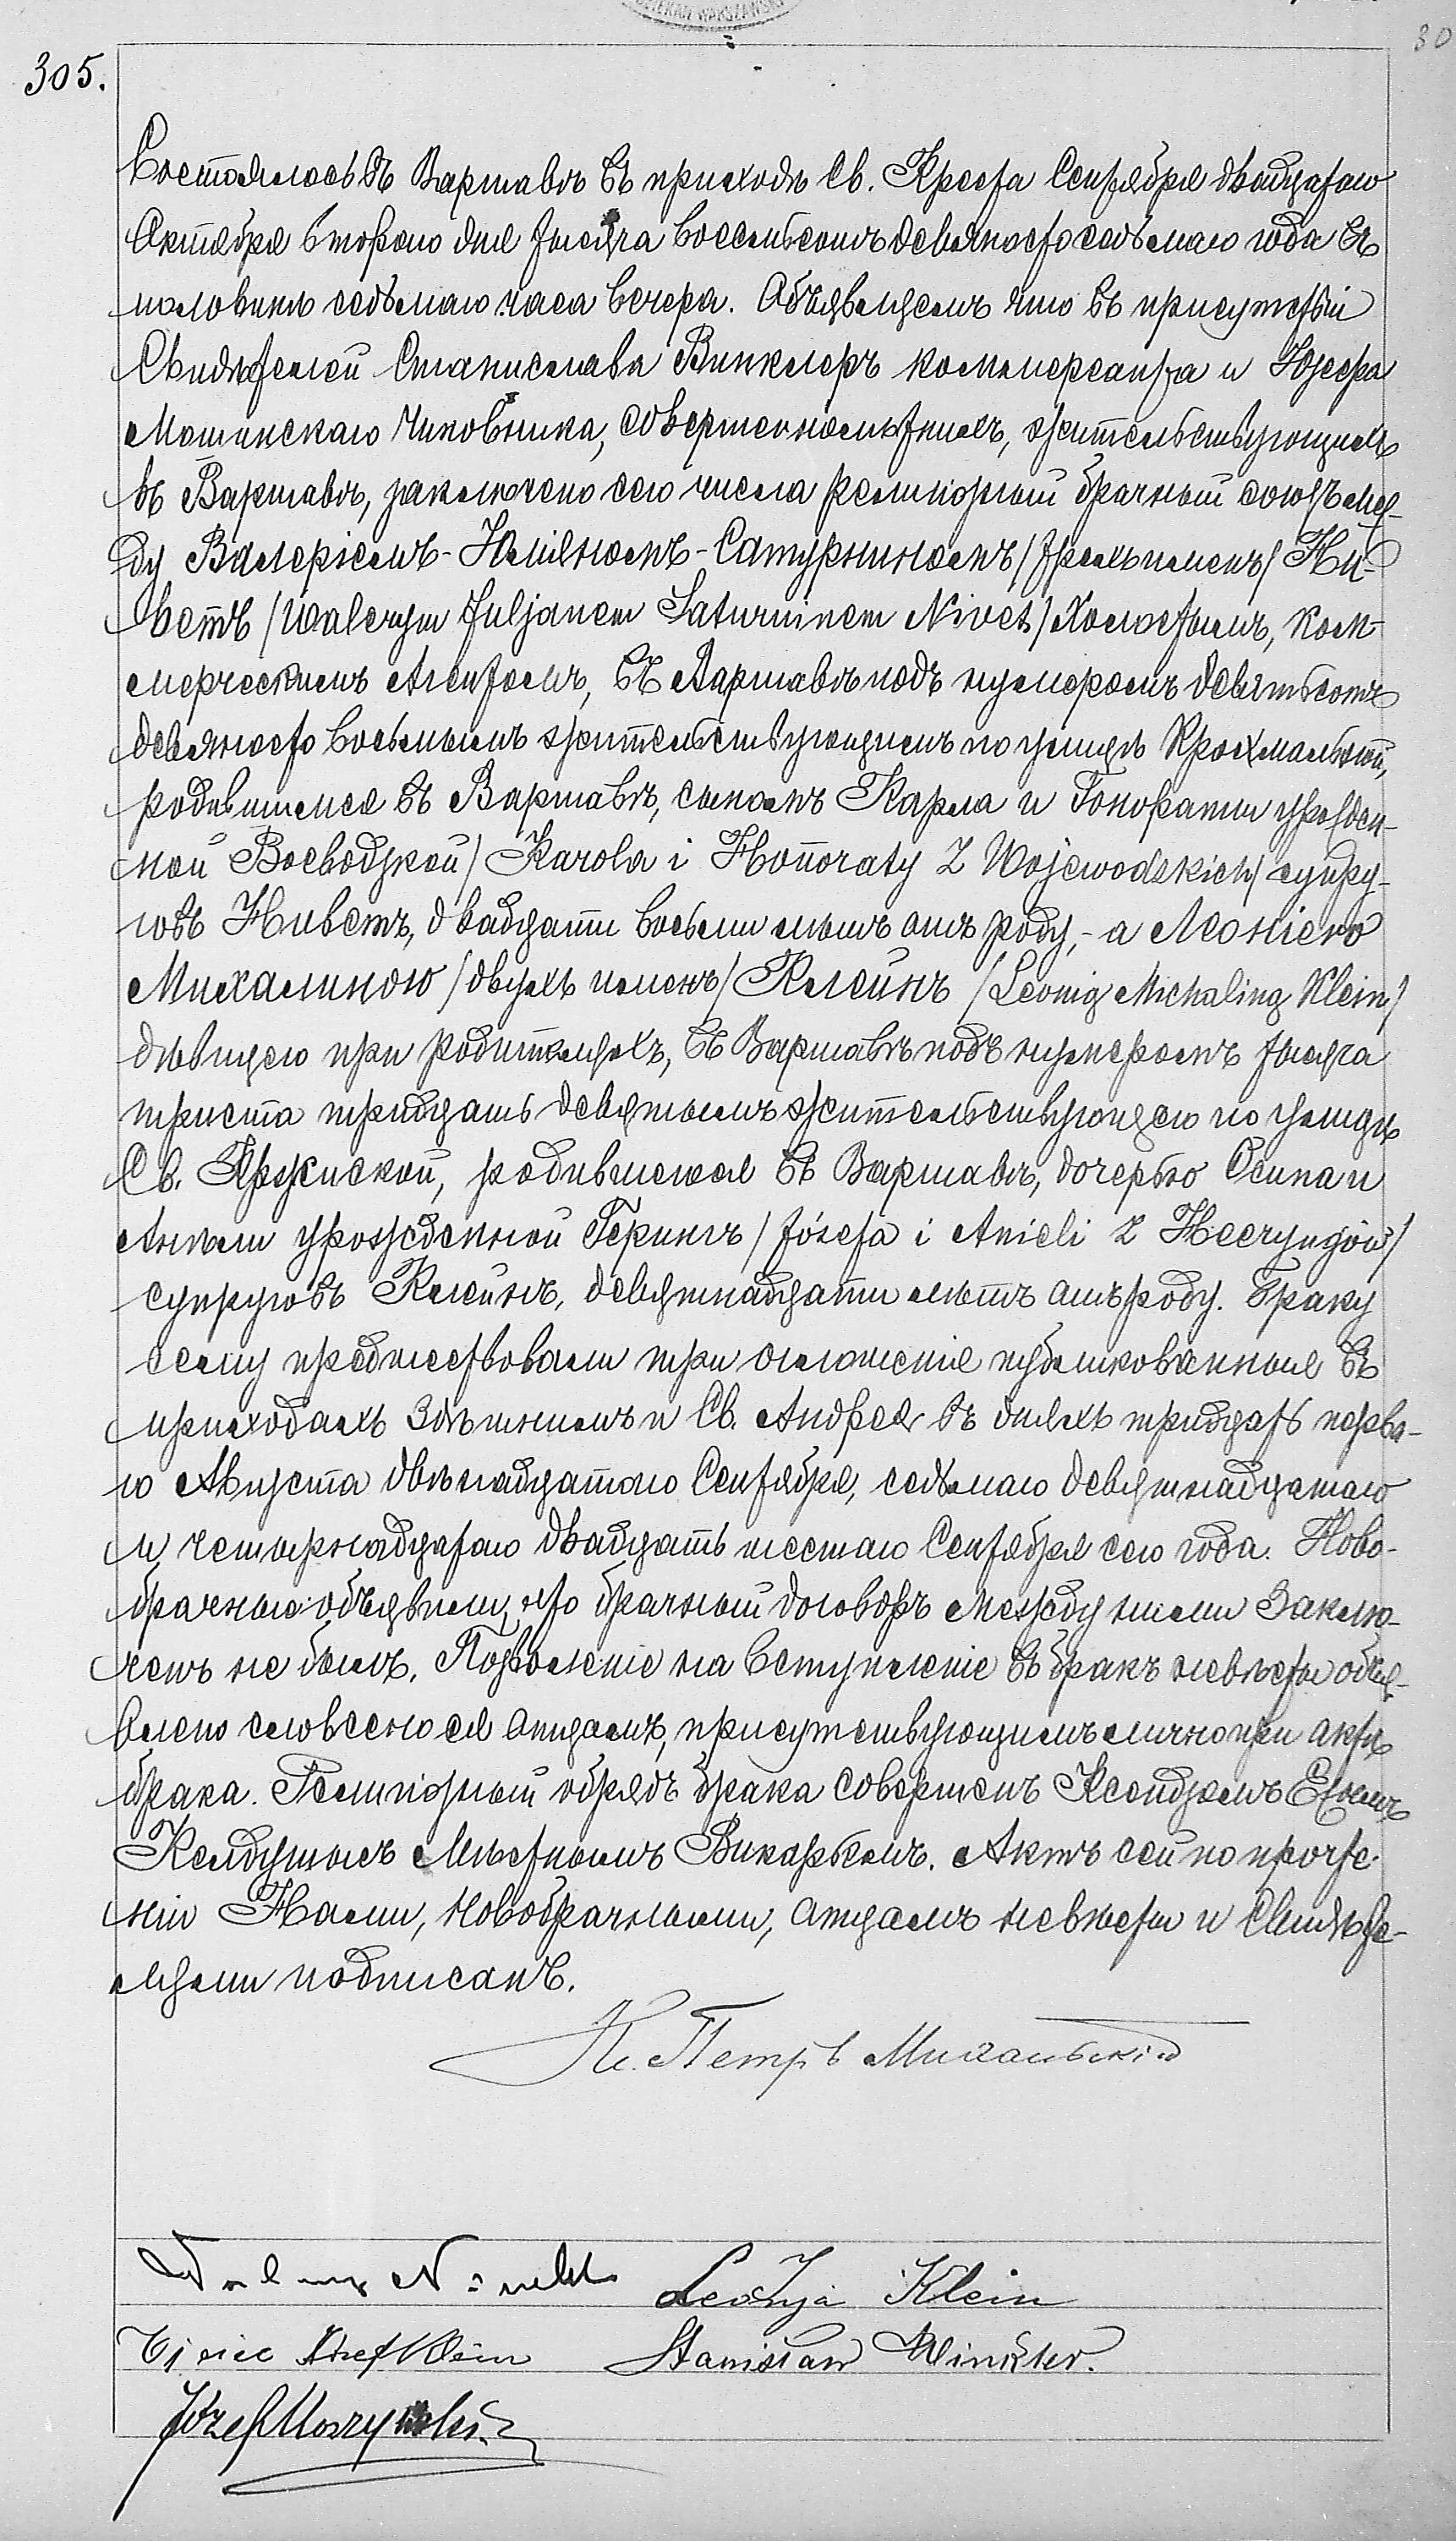 305.
30
Состоялось въ Варшавѣ въ приходѣ Св. Креста Сентября двадцатаго
Октября второго дня тысяча восемьсотъ девяносто седьмаго года въ
половинѣ седьмаго часа вечера. Объявляемъ что въ присутствіи
Свидѣтелей Станислава Винклеръ коммерсанта и Юзефа
Мошинскаго Чиновника, совершеннолѣтнихъ, жительствующихъ
въ Варшавѣ, заключено сего числа религіозный брачный союзъ меж-
ду Валеріемъ-Юліяномъ-Сатурниномъ /трехъ именъ/ Ни-
ветъ /Walerym Juljanem Saturninem Nivet/ Холостымъ, ком-
мерческимъ Агентомъ, въ Варшавѣ подъ нумеромъ девятьсотъ
девяносто восьмымъ жительствующимъ по улицѣ Крохмальной,
родившимся въ Варшавѣ, сыномъ Карла и Гонораты урожден-
ной Воеводзкой /Karola i Honoraty z Wojewodskich/ супру-
говъ Ниветъ, двадцати восьми лѣтъ отъ роду,- а Леонією
Михалиною /двухъ именъ/ Клейнъ /Leonią Michaliną Klein/
дѣвицею при родителяхъ, въ Варшавѣ подъ нумеромъ тысяча
триста тридцать девятымъ жительствующею по улицѣ
Св. Кржиской, родившеюся въ Варшавѣ, дочерью Осипа и
Анѣли урожденной Герингъ /Józefa i Anieli z Heeryngów/
супруговъ Клейнъ, девятнадцати лѣтъ отъ роду. Браку
сему предшествовали три оглашенія публикованныя въ
приходахъ Здѣшнемъ и Св. Андрея въ дняхъ тридцать перва-
го Августа двѣнадцатого Сентября, седьмаго девятнадцатаго
и четырнадцатаго двадцать шестаго Сентября сего года. Ново-
брачные объявили, что брачный договоръ между ними заклю-
ченъ не былъ. Позволеніе на вступленіе въ бракъ невѣсты объя-
влено словесно ея отцемъ, присутствующимъ лично при актѣ
брака. Религіозный обрядъ брака совершенъ Ксендземъ
Мѣстнымъ Викаріемъ. Актъ сей по прочте-
ніи Нами, новобрачными, отцемъ невѣсты и Свидѣте-
лями подписанъ.
К. Петръ Михальскій
Walery Nivet Leonja Klein
Ojciec Józef Klein Stanisław Winkler.
Józef Moszyński